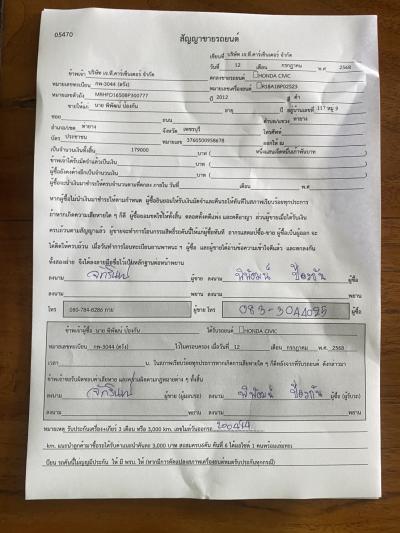 05470
สัญญาขายรถยนต์
เขียนที่ บริษัท เจ.ที.คาร์เซ็นเตอร์ จำกัด
วันที่ 12 เดือน กรกฎาคม พ.ศ 2568
ข้าพเจ้า บริษัท เจ.ที.คาร์เซ็นเตอร์ จำกัด ตกลงขายรถยนต์ HONDA CIVIC
หมายเลขทะเบียน กพ-3044 (ตรัง) หมายเลขเครื่องยนต์ R18A18P02523
หมายเลขตัวถัง MRHFD16508P300777 ปี 2012 สี ดำ
ขายให้แก่ นาย พิพัฒน์ ป้องกัน อายุ ปี อยู่บ้านเลขที่ 117 หมู่ 9
ซอย ถนน ตำบล/แขวง ท่ายาง
อำเภอ/เขต ท่ายาง จังหวัด เพชรบุรี โทรศัพท์
บัตร ประชาชน หมายเลข 3760500958678 ออกให้ ณ
เป็นจำนวนเงินทั้งสิ้น 179000 บาท ( หนึ่งแสนเจ็ดหมื่นเก้าพันบาท
ข้าพเจ้าได้รับมัดจำแล้วเป็นเงิน บาท (
ผู้ซื้อยังคงค้างอีกเป็นจำนวนเงิน บาท (
ผู้ซื้อจะนำเงินมาชำระให้ครบจำนวนตามที่ตกลง ภายใน วันที่ เดือน พ.ศ
หากผู้ซื้อไม่นำเงินมาชำระให้ตามกำหนด ผู้ซื้อยินยอมให้ริบเงินมัดจำและคืนรถให้ทันทีในสภาพเรียบร้อยทุกประการ
ถ้าหากเกิดความเสียหายใด ๆ ก็ดี ผู้ซื้อยอมชดใช้ให้ทั้งสิ้น ตลอดทั้งคดีแพ่ง และคดีอาญา ส่วนผู้ขายเมื่อได้รับเงิน
ครบถ้วนตามสัญญาแล้ว ผู้ขายจะทำการโอนกรรมสิทธิ์รถคันนี้ให้แก่ผู้ซื้อทันที
ทั้งสองฝ่าย จึงได้ลงลายมือชื่อไว้เป็นหลักฐานต่อหน้าพยาน
ลงนาม จักรินทร์ ผู้ขาย ลงนาม พิพัฒน์ ป้องกัน ผู้ซื้อ
ลงนาม พยาน ลงนาม พยาน
โทร 080-784-8286 กาย ผู้ขาย โทร 083-3041025 ผู้ซื้อ
ข้าพเจ้าผู้ซื้อ นาย พิพัฒน์ ป้องกัน ได้รับรถยนต์ HONDA CIVIC
หมายเลขทะเบียน กพ-3044 (ตรัง) ไว้ในครอบครอง เมื่อวันที่ 12 เดือน กรกฎาคม พ.ศ 2568
เวลา น. ในสภาพเรียบร้อยทุกประการหากเกิดการเสียหายใด ๆ
ข้าพเจ้าขอรับผิดชอบค่าเสียหาย และความผิดตามกฎหมายต่าง ๆ ทั้งสิ้น
ลงนาม จักรินทร์ ผู้ขาย (ผู้มอบรถ) ลงนาม พิพัฒน์ ป้องกัน ผู้ซื้อ (ผู้รับรถ)
ลงนาม พยาน ลงนาม พยาน
หมายเหตุ รับประกันเครื่อง+เกียร์ 3 เดือน หรือ 3,000 km. เลขไมล์วันออกรถ
km. แนะนำลูกค้ามาซื้อรถได้รับค่าแนะนำคันละ 3,000 บาท